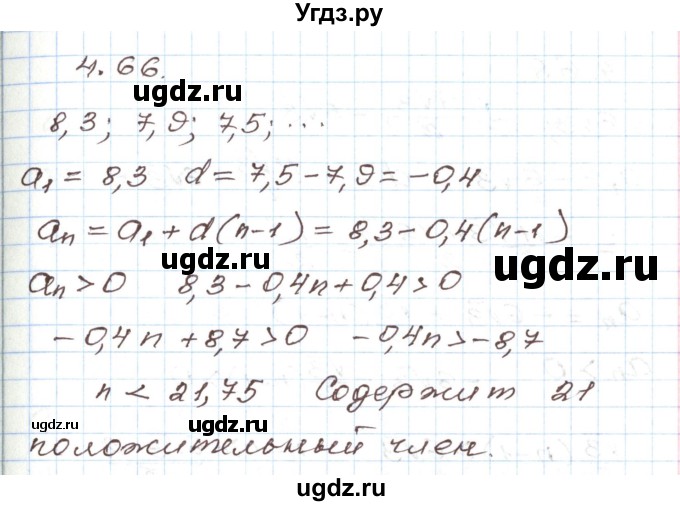 Угдз.ру
4.66.
ugdz.ru
8,3; 7,9; 7,5; ...
a₁ = 8,3 d = 7,5-7,9 = -0,4
aₙ = a₁ + d(n-1) = 8,3-0,4(n-1)
ugdz.ru
aₙ > 0 8,3-0,4n+0,4>0
-0,4n+8,7>0 -0,4n>-8,7
n < 21,75 Содержит 21
ugdz.ru
ugdz.ru
положительный член.
ugdz.ru
ugdz.ru